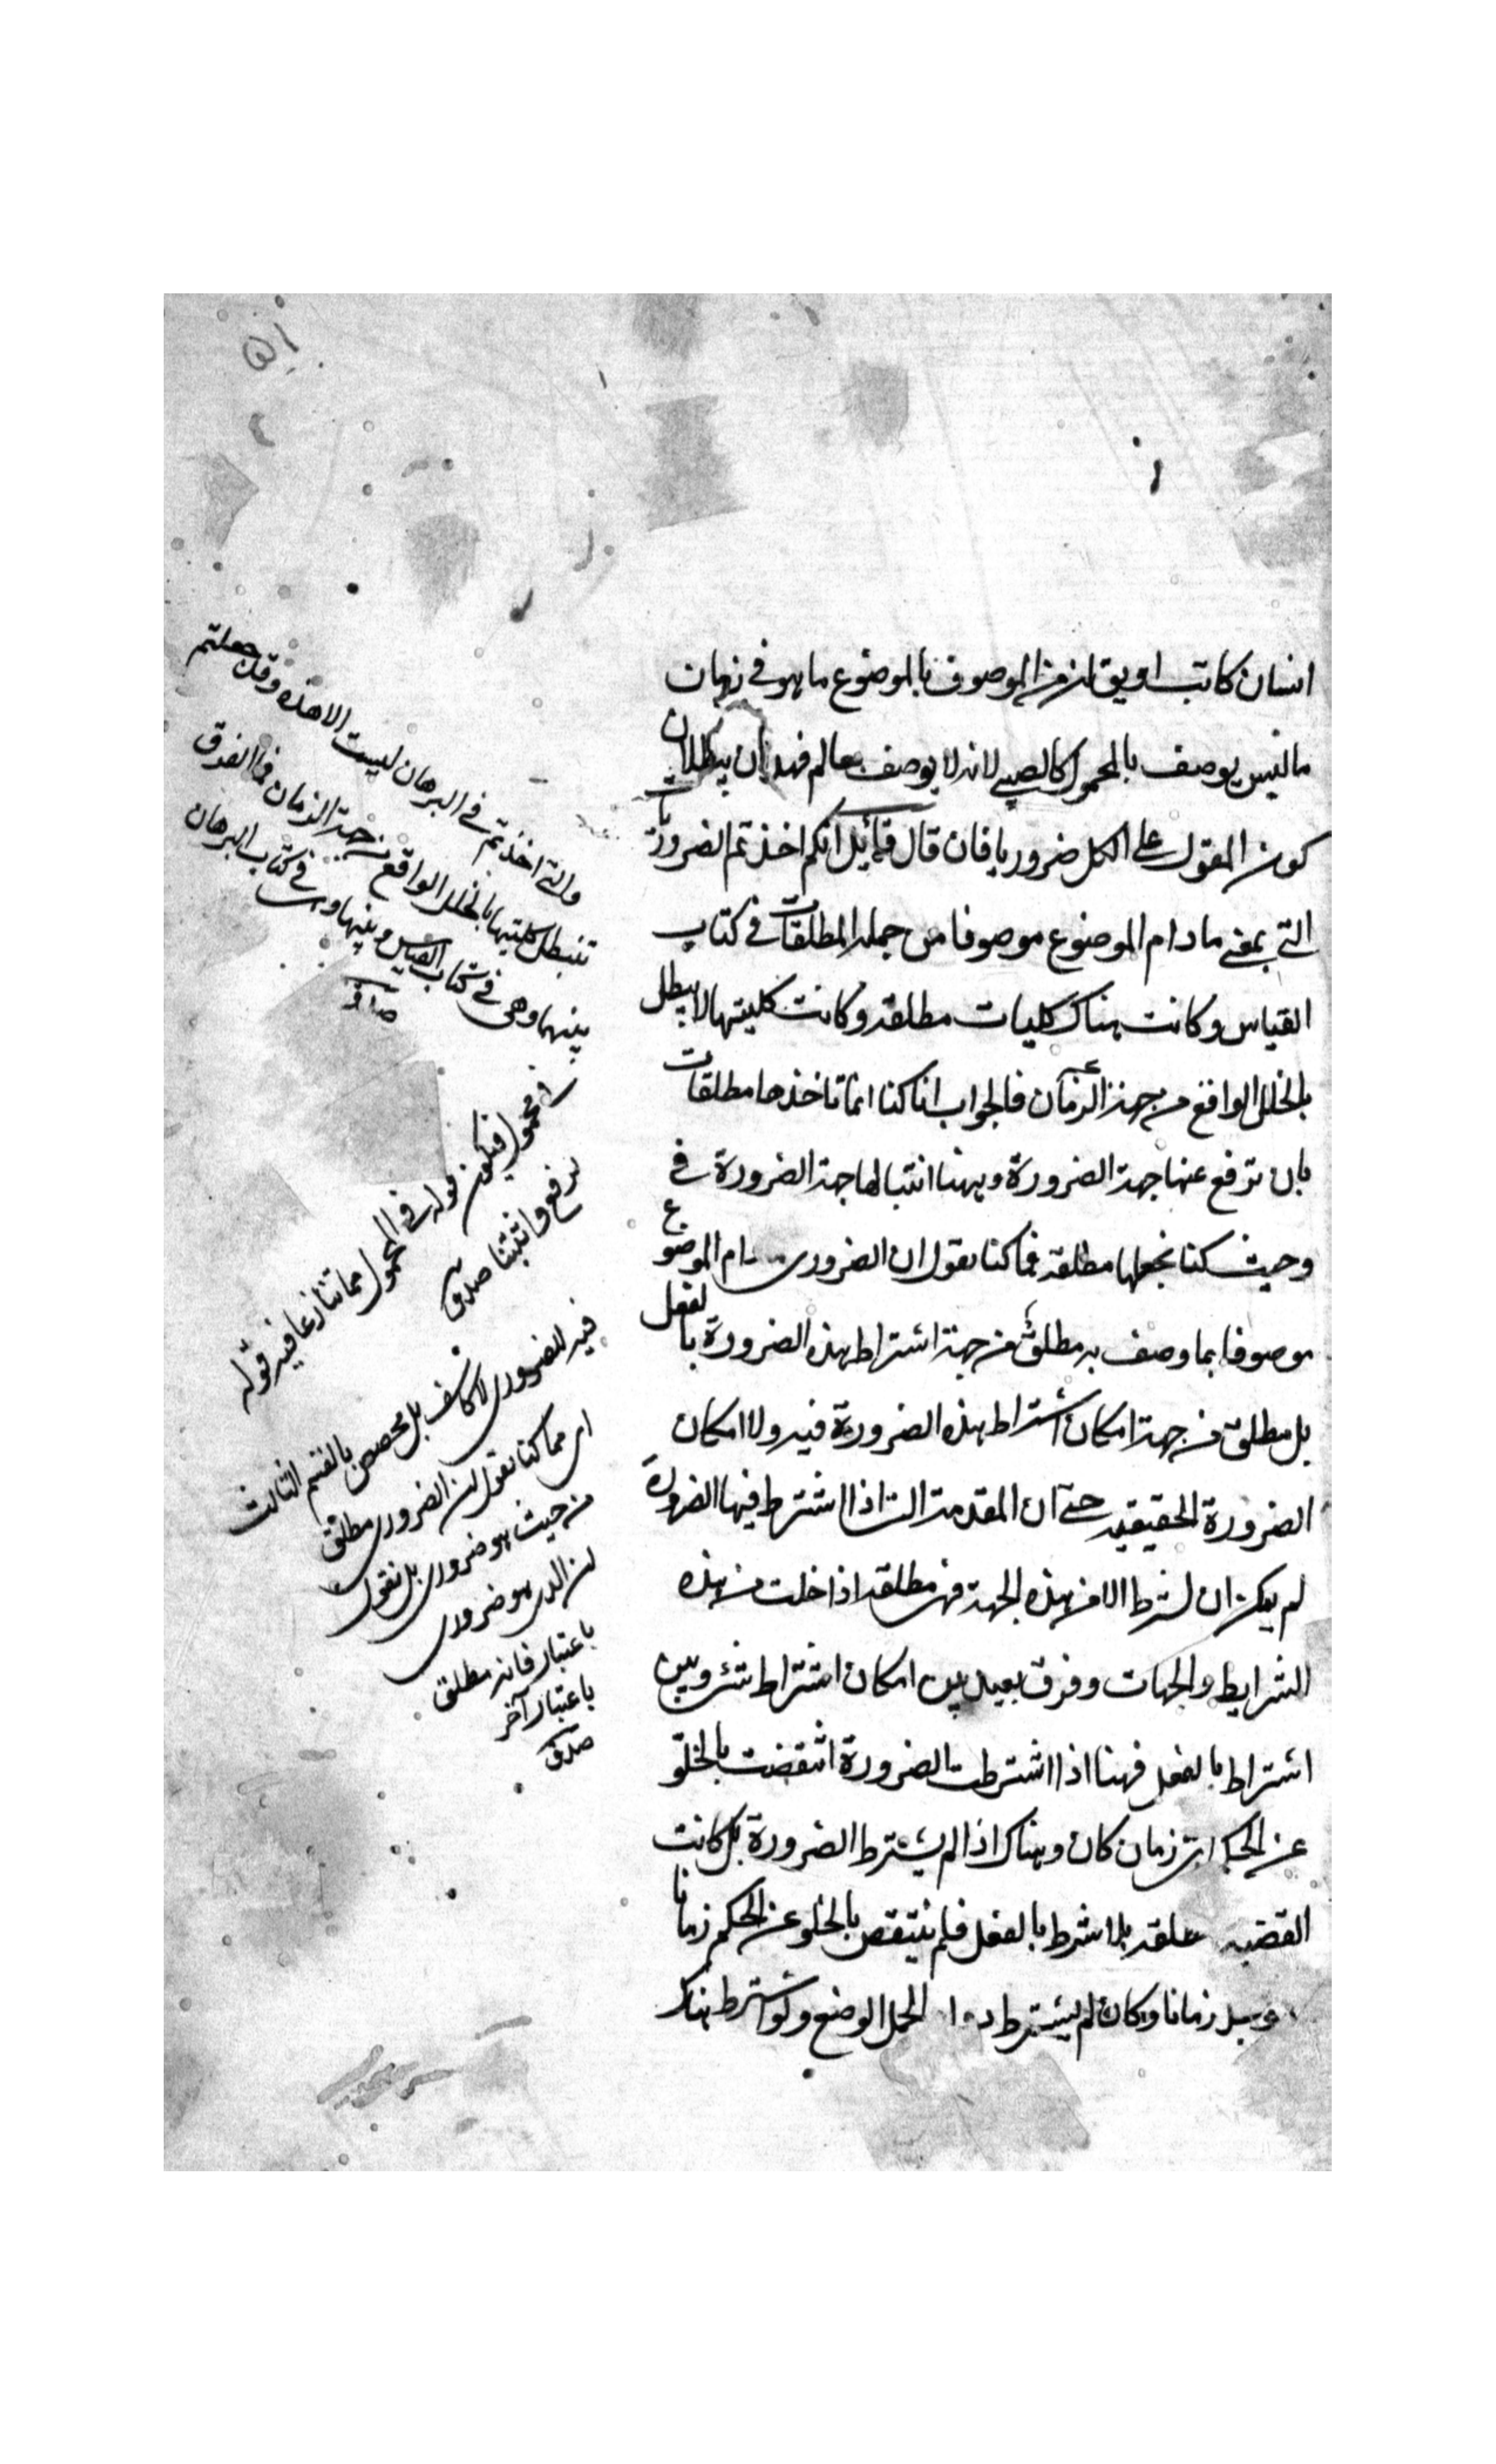 انسان كاتب او يق لان من الموصوف بالموضوع ما هو في زمان
ما ليس يوصف بالمحمول كالصبي لانه لا يوصف بعالم فهذان يبطلان
كون المقول على الكل ضروريا فان قال قائل انكم اخذتم الضروريات
التي بمعنى ما دام الموضوع موصوفا من جملة المطلقات في كتاب
القياس وكانت هناك كليات مطلقة وكانت كليتها لا يبطل
بالخلل الواقع من جهة الزمان فالجواب انا كنا انما ناخذها مطلقات
بان نرفع عنها جهة الضرورة وههنا اثبتنا لها جهة الضرورة في
وحيث كنا نجعلها مطلقة فما كنا نقول ان الضروري ام الموضوع
موصوفا بما وصف به مطلق من جهة اشتراط هذه الضرورة بالفعل
بل مطلق من جهة امكان اشتراط هذه الضرورة فيه ولا امكان
الضرورة الحقيقية حتى ان المقدمة التى اذا اشترط فيها الضرورة
لم يمكن ان نشرط الا من هذه الجهة فهى مطلقة اذا خلت من هذه
الشرايط والجهات وفرق بعيد بين امكان اشتراط شئ وبين
اشتراط بالفعل فههنا اذا اشترطت الضرورة انتقضت بالخلو
عن الحكم اى زمان كان وهناك اذا لم يشترط الضرورة بل كانت
القضية بلا شرط بالفعل فلم ينتقض بالخلو عن الحكم زمانا
زمانا وكان لم يشترط الحمل الوضع ولو اشترط هناك
والتى اخذتم في البرهان ليست الا هذه وقد جعلتم
تبطل كليتها بالخلل الواقع من جهة الزمان فما الفرق
بينهما وهى في كتاب القياس وبينها وهى في كتاب البرهان
صدق
المحمول فيكون قوله في المحمول مما تنازعا فيه قوله
نرفع واثبتنا صدق
فيه للضرورى لا كاشف بل مخصص بالقسم الثالث
اى مما كنا نقول ان الضرورى مطلق
من حيث هو ضرورى بل نقول
ان الذى هو ضرورى
باعتبار فانه مطلق
باعتبار آخر
صدق